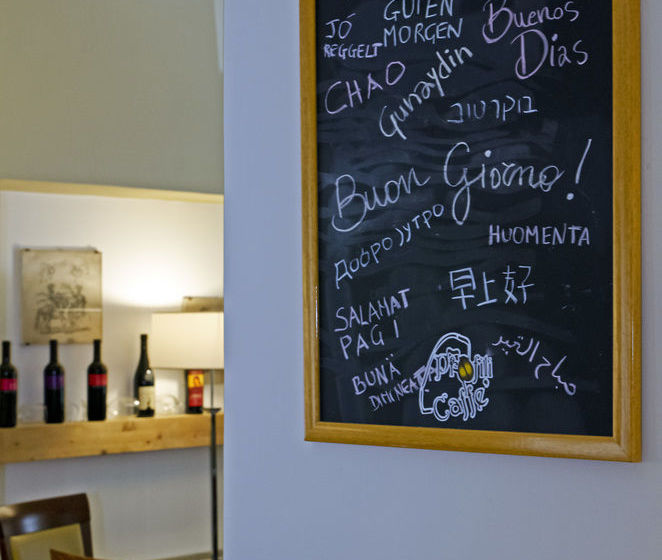 JÓ
REGGELT
GUTEN
MORGEN
Buenos
Dias
CHAO
Gunaydin
בוקר טוב
Buon Giorno!
Доброутро
HUOMENTA
早上好
SALAMAT
PAGI
صباح الخير
BUNĂ
DIMINEAȚA
Caffe